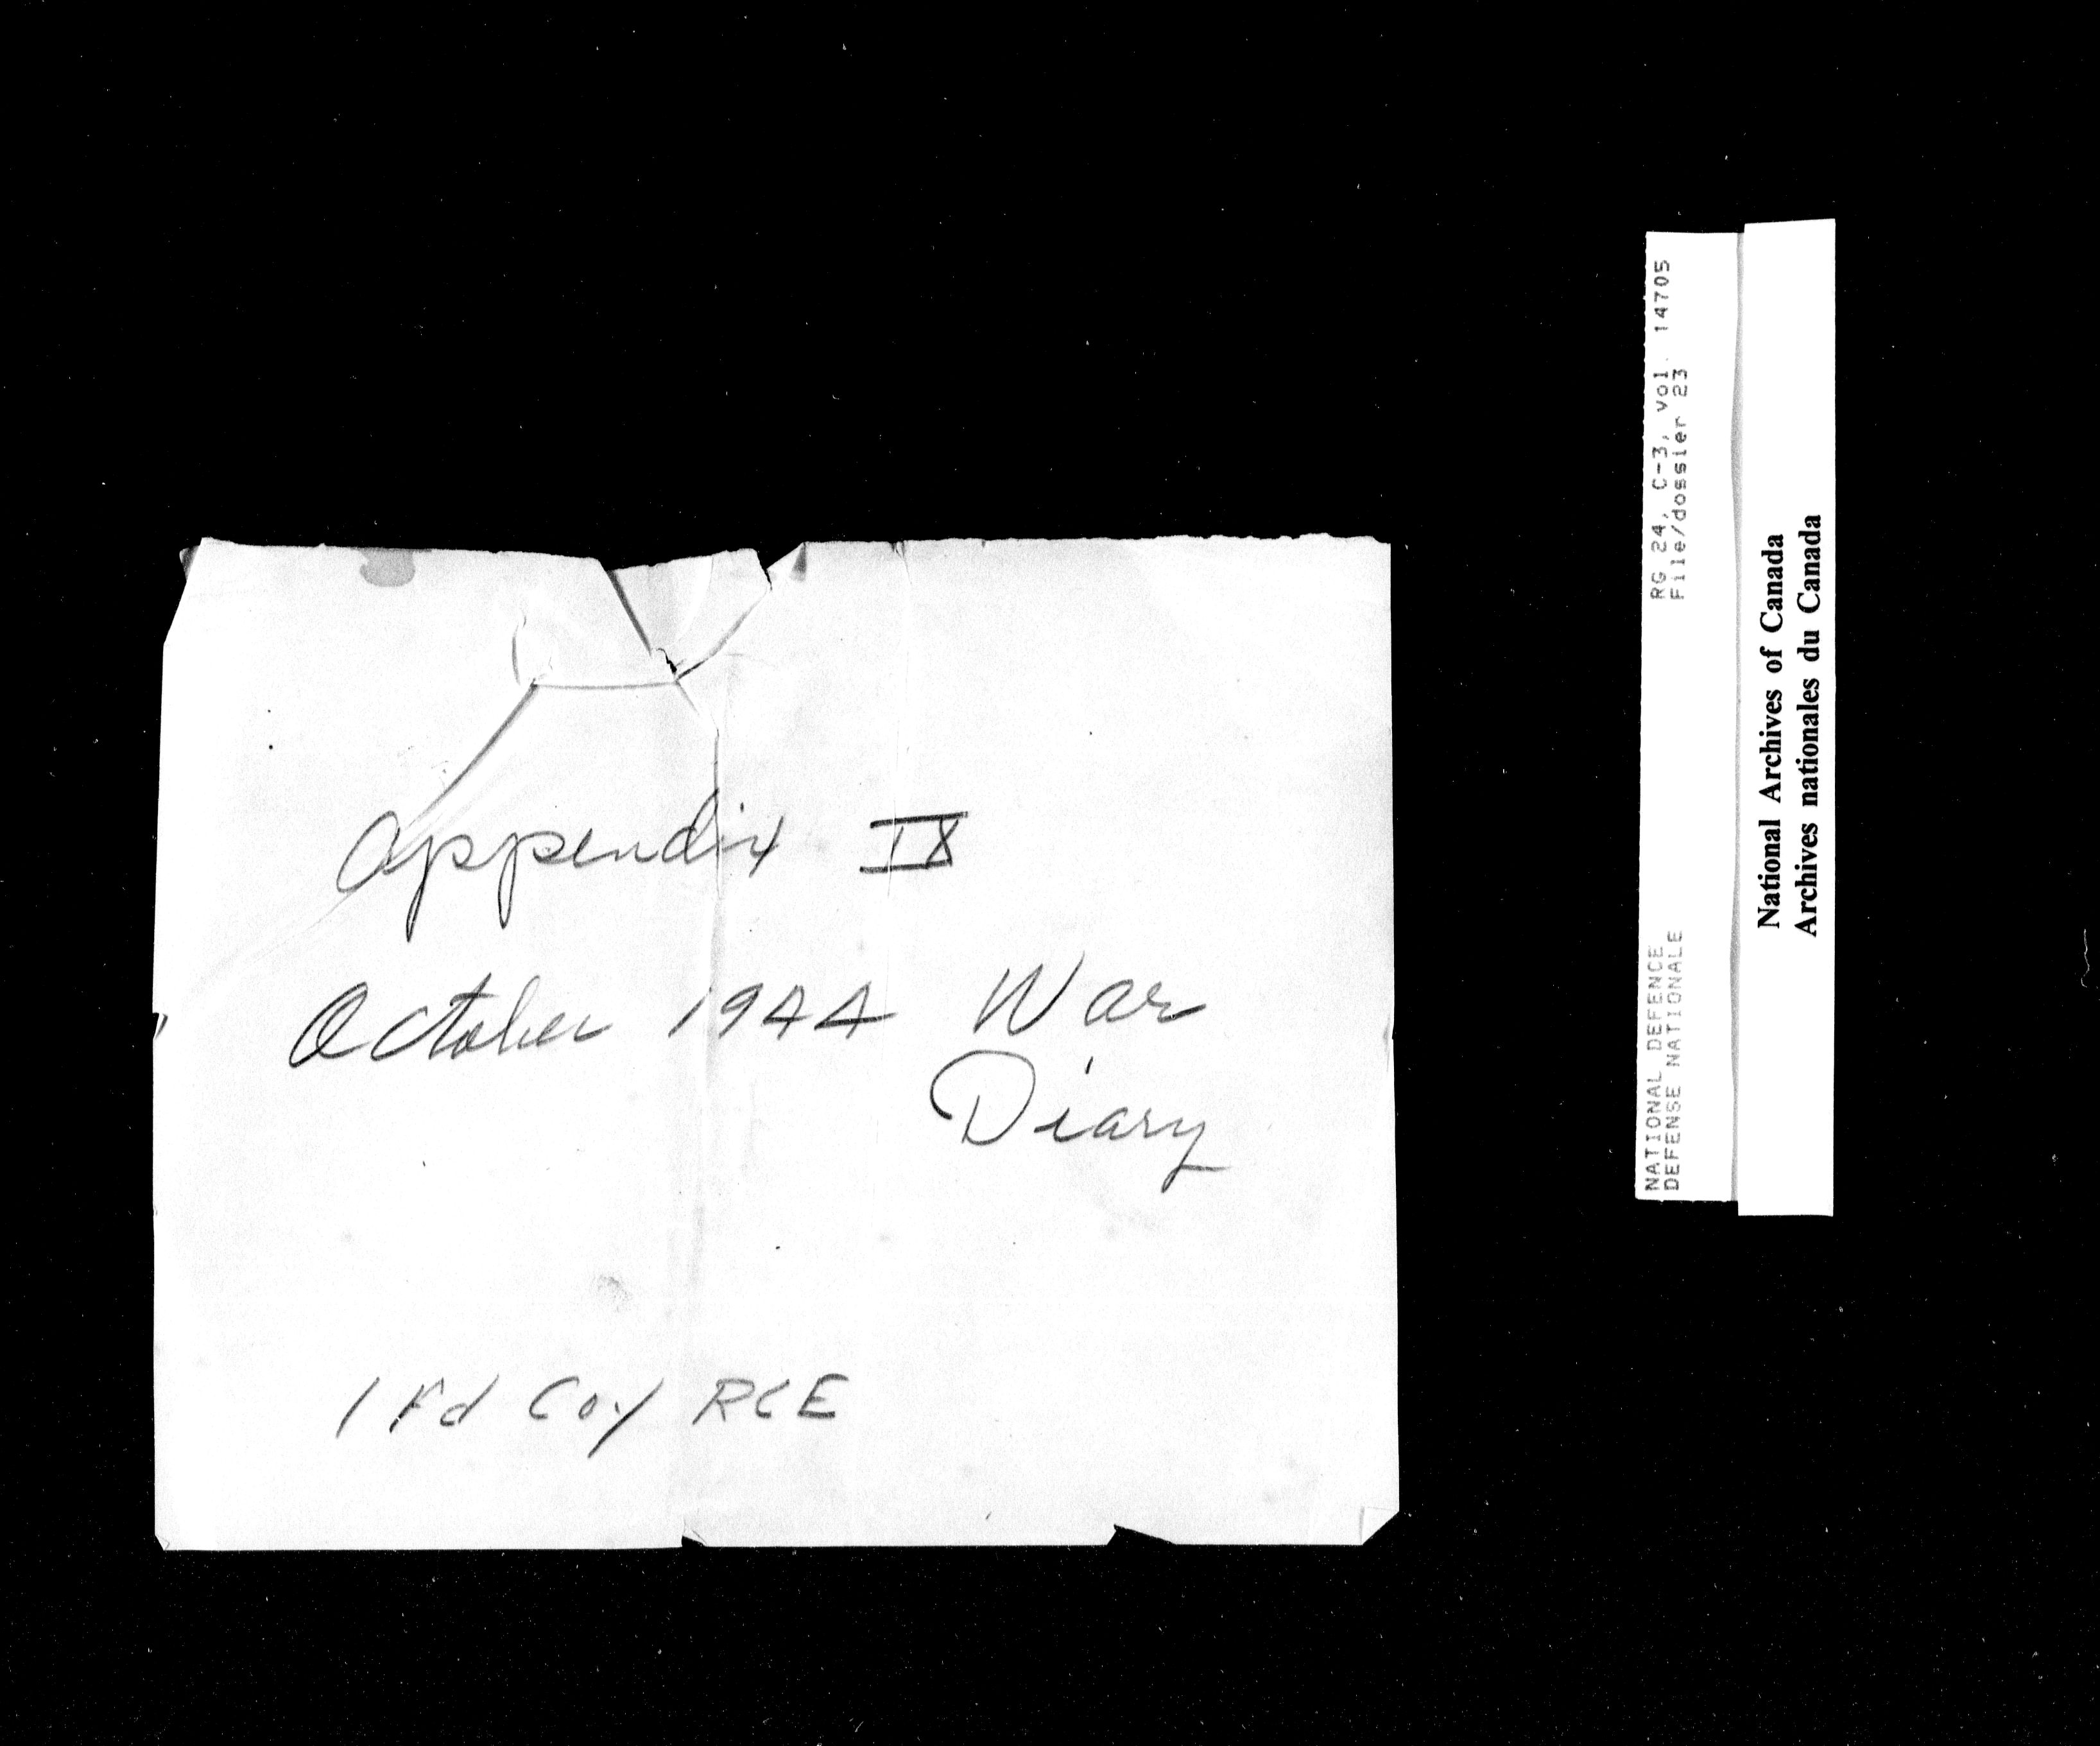 Appendix IX
October 1944 War
Diary
1 Fd Coy RCE
NATIONAL DEFENCE RG 24, C-3, vol. 14705
DEFENSE NATIONALE File/dossier 23
National Archives of Canada
Archives nationales du Canada